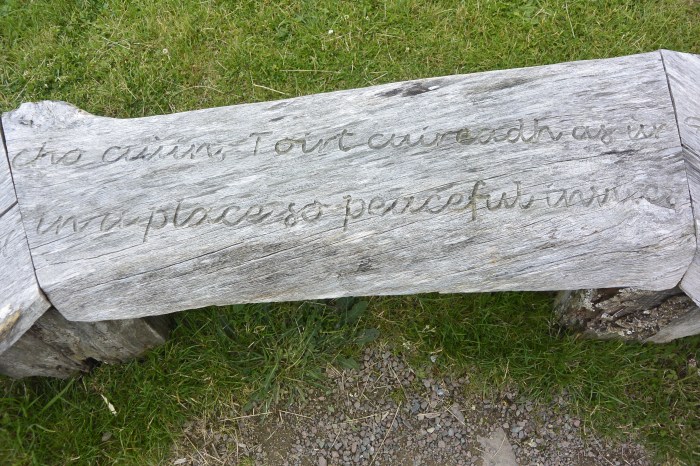 cho ciùin, Toirt cuireadh as ùr
in a place so peaceful invites